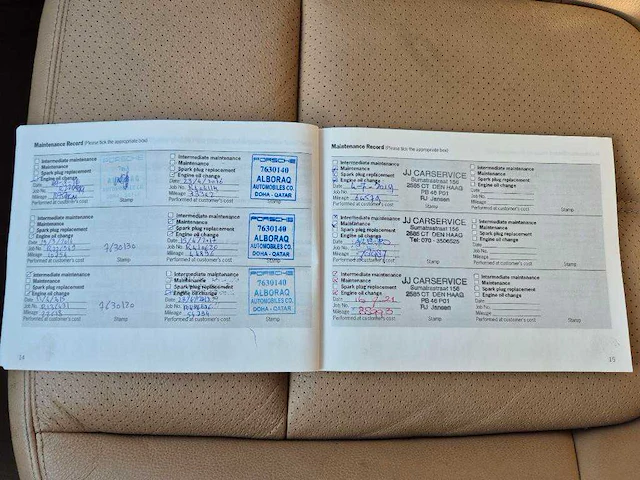 Maintenance Record (Please tick the appropriate box)
Intermediate maintenance
Maintenance
Spark plug replacement
Engine oil change
Date
Job No.
Mileage
Performed at customer's cost
Stamp
Intermediate maintenance
Maintenance
Spark plug replacement
Engine oil change
Date
Job No.
Mileage
Performed at customer's cost
PORSCHE
7630140
ALBORAQ
AUTOMOBILES CO.
DOHA - QATAR
Stamp
Intermediate maintenance
Maintenance
Spark plug replacement
Engine oil change
Date
Job No.
Mileage
Performed at customer's cost
7/30130
Stamp
Intermediate maintenance
Maintenance
Spark plug replacement
Engine oil change
Date
Job No.
Mileage
Performed at customer's cost
PORSCHE
7630140
ALBORAQ
AUTOMOBILES CO.
DOHA - QATAR
Stamp
Intermediate maintenance
Maintenance
Spark plug replacement
Engine oil change
Date
Job No.
Mileage
Performed at customer's cost
Stamp
Intermediate maintenance
Maintenance
Spark plug replacement
Engine oil change
Date
Job No.
Mileage
Performed at customer's cost
PORSCHE
7630140
ALBORAQ
AUTOMOBILES CO.
DOHA - QATAR
Stamp
14
Maintenance Record (Please tick the appropriate box)
Intermediate maintenance
Maintenance
Spark plug replacement
Engine oil change
Date
Job No.
Mileage
Performed at customer's cost
JJ CARSERVICE
Sumatrastraat 156
2585 CT DEN HAAG
PB 46 P01
RJ Jansen
Stamp
Intermediate maintenance
Maintenance
Spark plug replacement
Engine oil change
Date
Job No.
Mileage
Performed at customer's cost
Stamp
Intermediate maintenance
Maintenance
Spark plug replacement
Engine oil change
Date
Job No.
Mileage
Performed at customer's cost
JJ CARSERVICE
Sumatrastraat 156
2585 CT DEN HAAG
Tel: 070 - 3506525
Stamp
Intermediate maintenance
Maintenance
Spark plug replacement
Engine oil change
Date
Job No.
Mileage
Performed at customer's cost
Stamp
Intermediate maintenance
Maintenance
Spark plug replacement
Engine oil change
Date
Job No.
Mileage
Performed at customer's cost
JJ CARSERVICE
Sumatrastraat 156
2585 CT DEN HAAG
PB 46 P01
RJ Jansen
Stamp
Intermediate maintenance
Maintenance
Spark plug replacement
Engine oil change
Date
Job No.
Mileage
Performed at customer's cost
Stamp
15